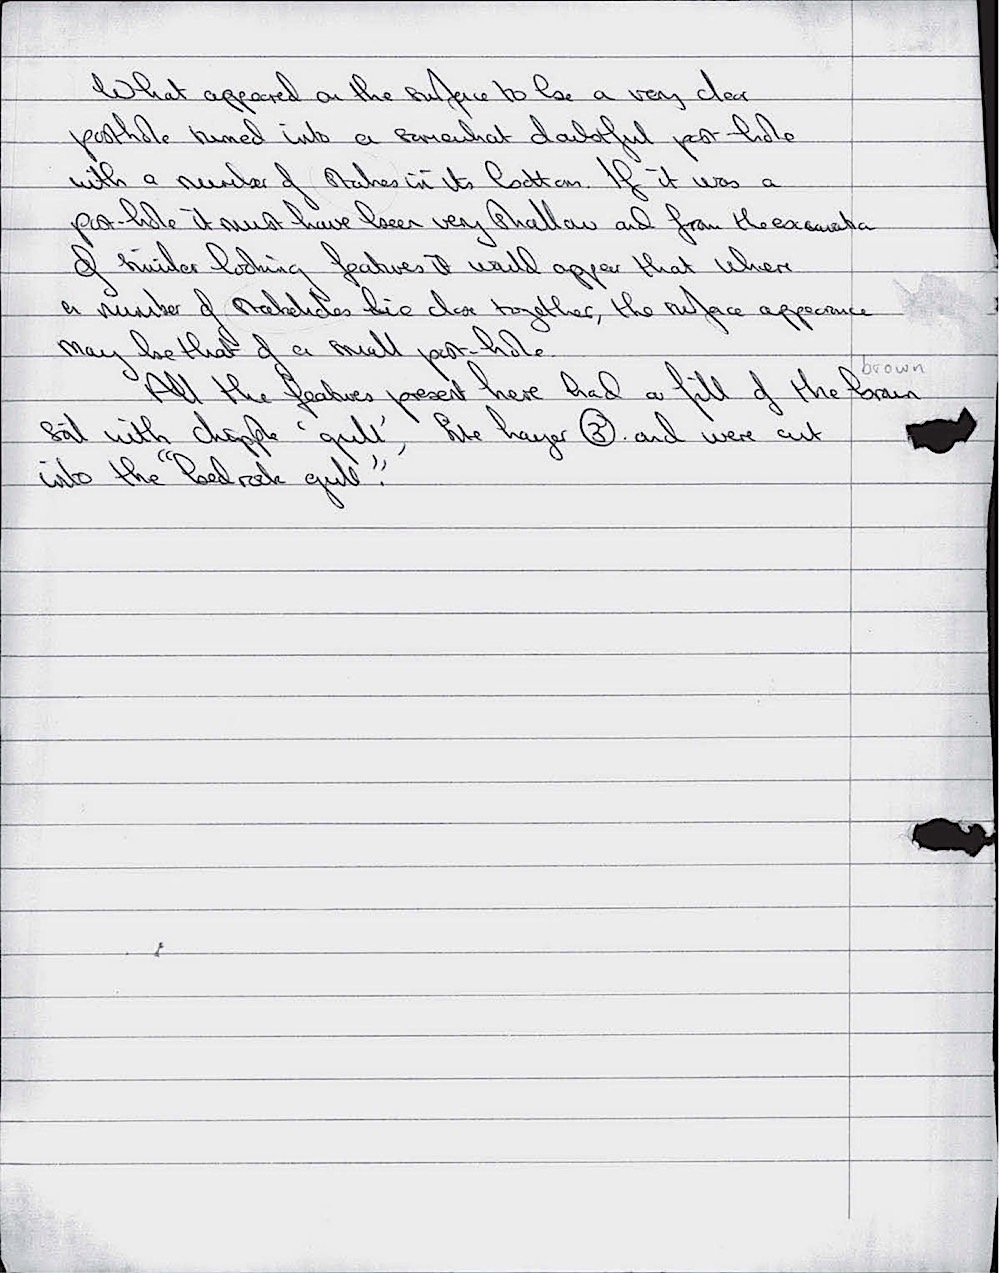 What appeared on the surface to be a very clear
posthole turned into a somewhat doubtful post-hole
with a number of stakes in its bottom. If it was a
post-hole it must have been very shallow and from the excavation
of similar looking features it would appear that where
a number of stakeholes lie close together, the surface appearance
may be that of a small post-hole.
brown
All the features present here had a fill of the brown
soil with chipple 'gull', like layer ③. and were cut
into the "bedrock gull".